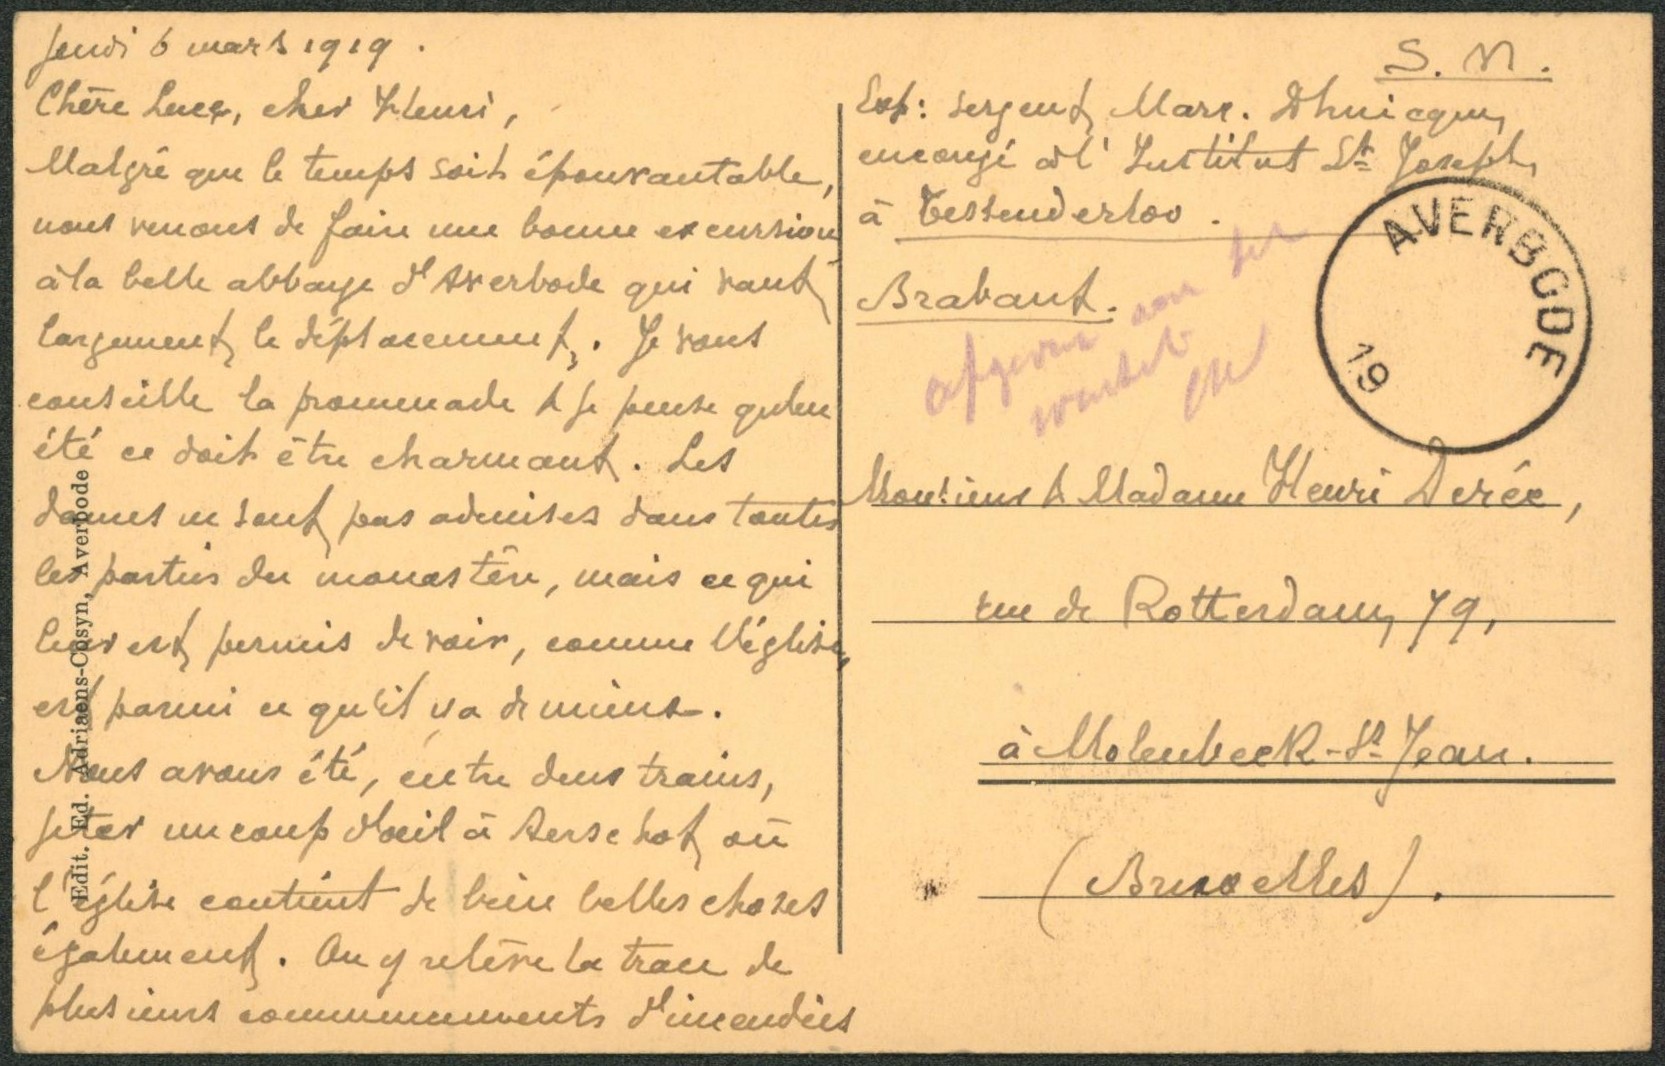 Jeudi 6 mars 1919.
Chère Luce, cher Henri,
Malgré que le temps soit épouvantable,
nous venons de faire une bonne excursion
à la belle abbaye d'Averbode qui vaut
largement le déplacement. Je vous
conseille la promenade & je pense qu'en
été ce doit être charmant. Les
dames ne sont pas admises dans toutes
les parties du monastère, mais ce qui
leur est permis de voir, comme l'église,
est parmi ce qu'il y a de mieux.
Nous avons été, entre deux trains,
jeter un coup d'oeil à Aerschot, où
l'église contient de bien belles choses
également. On y relève la trace de
plusieurs commencements d'incendies
Edit. Ed. Adriaens-Cosyn, Averbode
S. M.
Exp: sergent Marc. Dhuicque,
en congé à l'Institut St Joseph,
à Tessenderloo.
Brabant.
AVERBODE
19
Monsieur & Madame Henri Derée,
rue de Rotterdam, 79,
à Molenbeek-St Jean.
(Bruxelles).